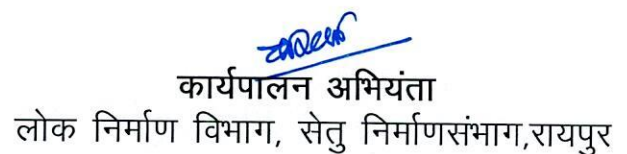 कार्यपालन अभियंता
लोक निर्माण विभाग, सेतु निर्माणसंभाग,रायपुर